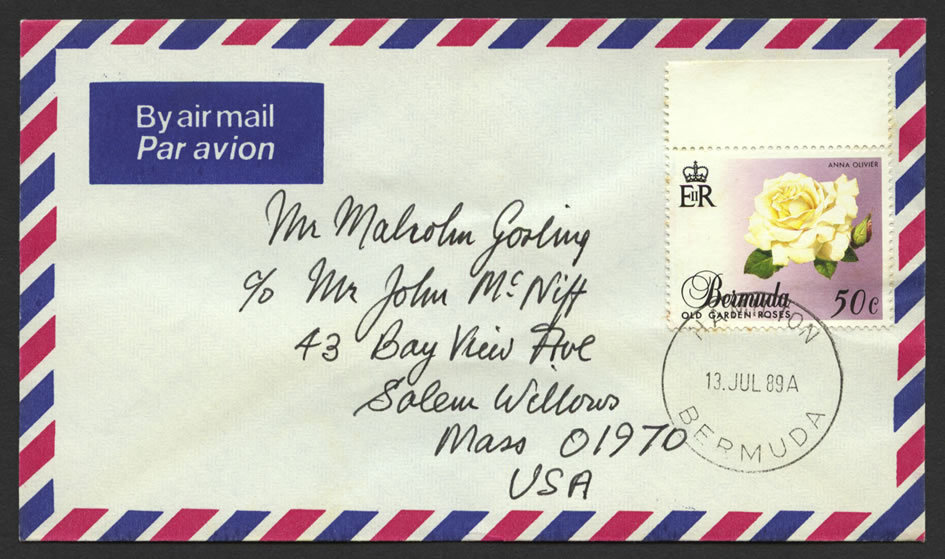 By air mail
Par avion
ANNA OLIVIER
EIIR
Bermuda 50c
OLD GARDEN ROSES
Mr Malcolm Gosling
c/o Mr John McNiff
43 Bay View Ave
Salem Willows
Mass 01970
USA
HAMILTON
13.JUL 89A
BERMUDA